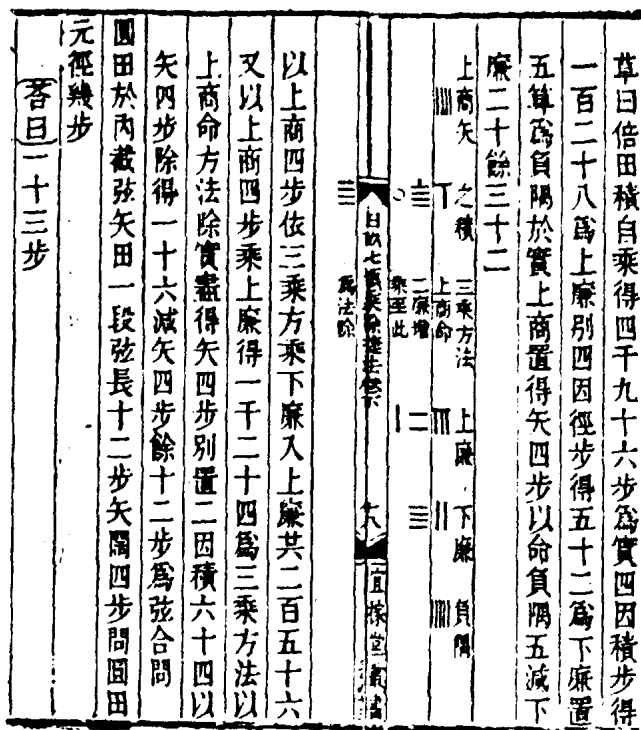 草曰倍田積自乘得四千九十六步爲實四因積步得
一百二十八爲上廉別四因徑步得五十二爲下廉置
五算爲負隅於實上商置得矢四步以命負隅五減下
廉二十餘三十二
上商矢 之積 三乘方法 上廉 下廉 負隅
上商命
二廉增
乘至此
爲法除
田畝比類乘除捷法卷下 十八 宜稼堂叢書
以上商四步依三乘方乘下廉入上廉共二百五十六
又以上商四步乘上廉得一千二十四爲三乘方法以
上商命方法除實盡得矢四步別置二因積六十四以
矢四步除得一十六減矢四步餘十二步爲弦合問
圓田於內截弦矢田一段弦長十二步矢闊四步問圓田
元徑幾步
答曰一十三步